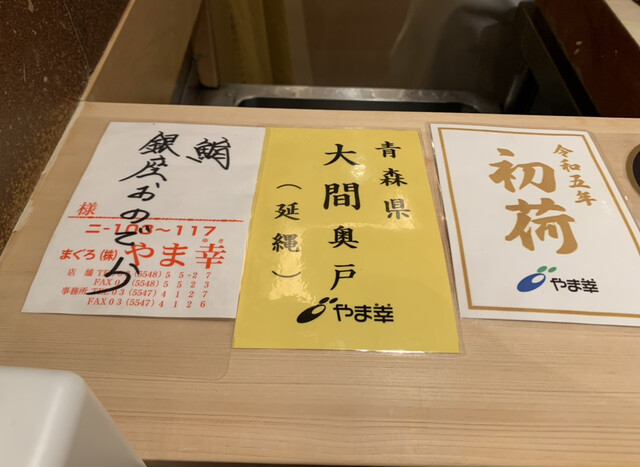 鮨
銀座おのでら
様
ニ-103～117
まぐろ(株)やま幸
ゆき
店 舗 TEL03(5548)5527
FAX03(5548)5523
事務所 TEL03(5547)4127
FAX03(5547)4126
青森県
大間奥戸
(延縄)
やま幸
令和五年
初荷
やま幸